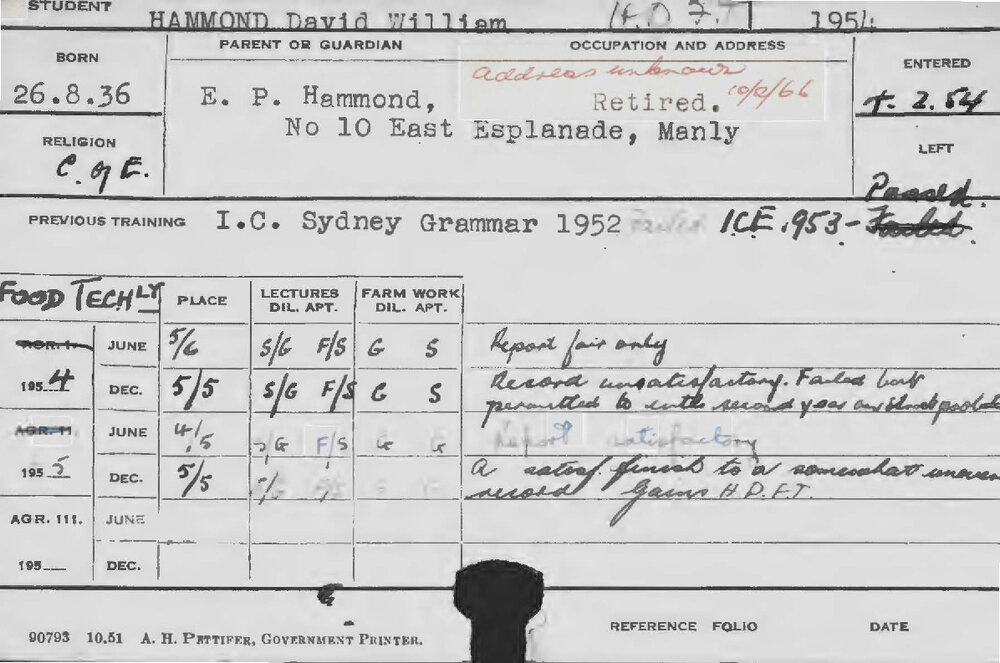 STUDENT HAMMOND David William H.D.F.T 1954
BORN PARENT OR GUARDIAN OCCUPATION AND ADDRESS ENTERED
address unknown
26.8.36 E. P. Hammond, Retired. 10/2/66 2.54
No 10 East Esplanade, Manly
RELIGION LEFT
C. of E. Passed.
PREVIOUS TRAINING I.C. Sydney Grammar 1952 Failed ICE.953- Failed.
FOOD TECHLY PLACE LECTURES DIL. APT. FARM WORK DIL. APT.
AGR. I. JUNE 5/6 S/G F/S G S Report fair only
1954 DEC. 5/5 S/G F/S G S Record unsatisfactory. Failed but
permitted to enter second year on
AGR. II JUNE 4/5 S/G F/S G G Report satisfactory
1955 DEC. 5/5 A satisf. finish to a somewhat uneven
record Gains H.D.F.T.
AGR. III. JUNE
195 DEC.
90793 10.51 A. H. PETTIFER, GOVERNMENT PRINTER. REFERENCE FOLIO DATE